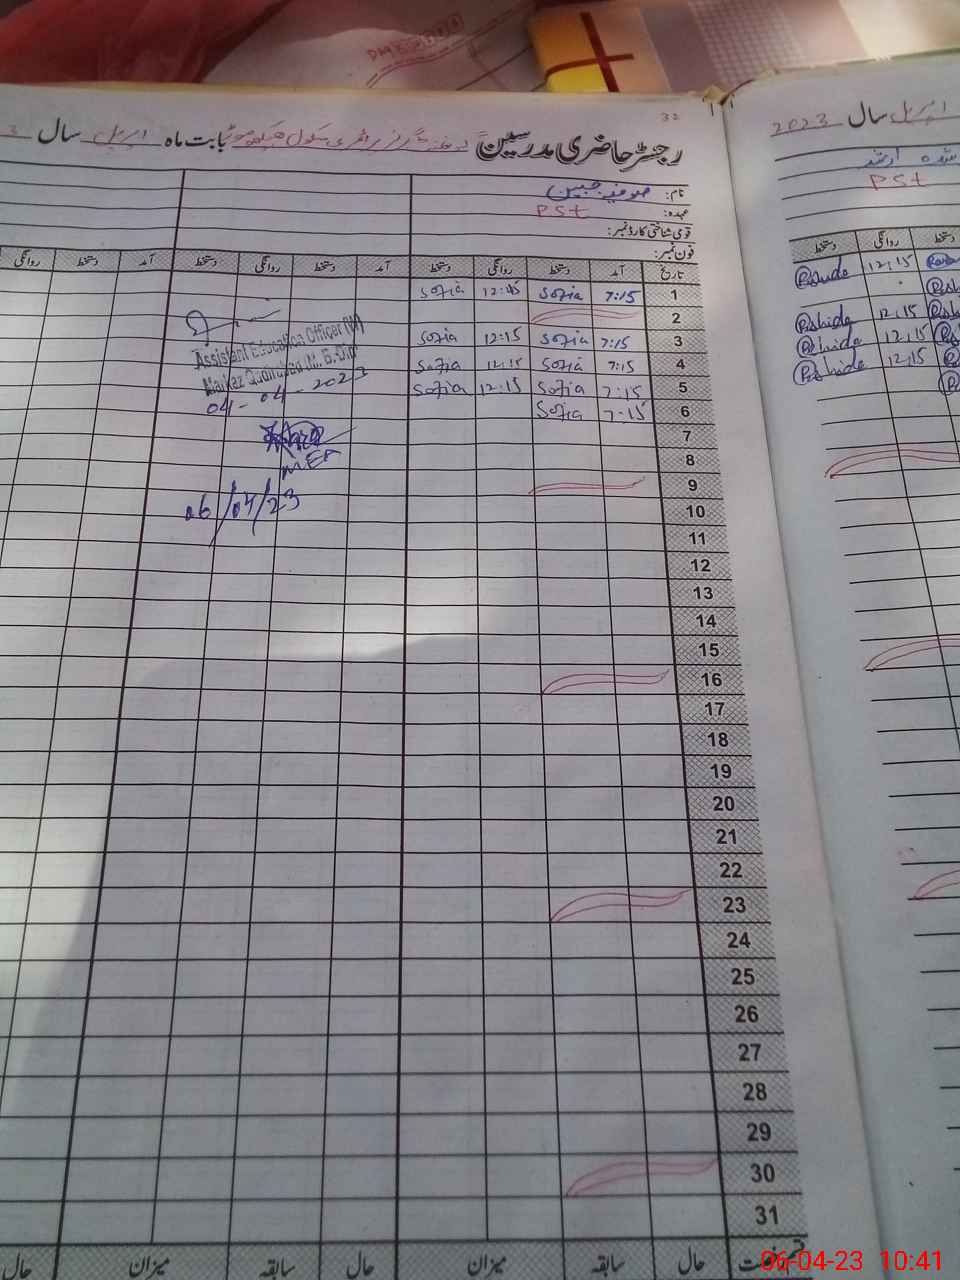 DMK
32
رجسٹر حاضری مدرسین گورنمنٹ گرلز پرائمری سکول بابت ماہ اپریل سال
اپریل سال 2023
نام: صوفیہ جبین
عہدہ: PST
قومی شناختی کارڈ نمبر:
فون نمبر:
تاریخ آمد دستخط روانگی دستخط آمد دستخط روانگی دستخط آمد دستخط روانگی
1 7:15 Sofia 12:45 Sofia
2
3 7:15 Sofia 12:15 Sofia
4 7:15 Sofia 12:15 Sofia
5 7:15 Sofia 12:15 Sofia
6 7:15 Sofia
7
8
9
10
11
12
13
14
15
16
17
18
19
20
21
22
23
24
25
26
27
28
29
30
31
حال سابقہ میزان حال سابقہ میزان حال
Assistant Education Officer (W)
Markaz Quadirabad (M.B.Din)
04-04-2023
MEA
06/04/23
PST
دستخط روانگی دستخط
12:15 Rashida
12:15 Rashida
12:15 Rashida
12:15 Rashida
06-04-23 10:41